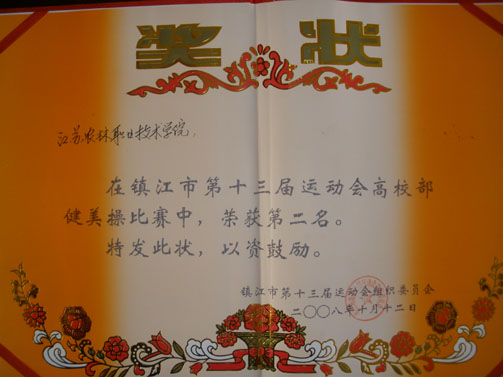 奖状
江苏农林职业技术学院,
在镇江市第十三届运动会高校部
健美操比赛中，荣获第二名。
特发此状，以资鼓励。
镇江市第十三届运动会组织委员会
二〇〇八年十月十二日